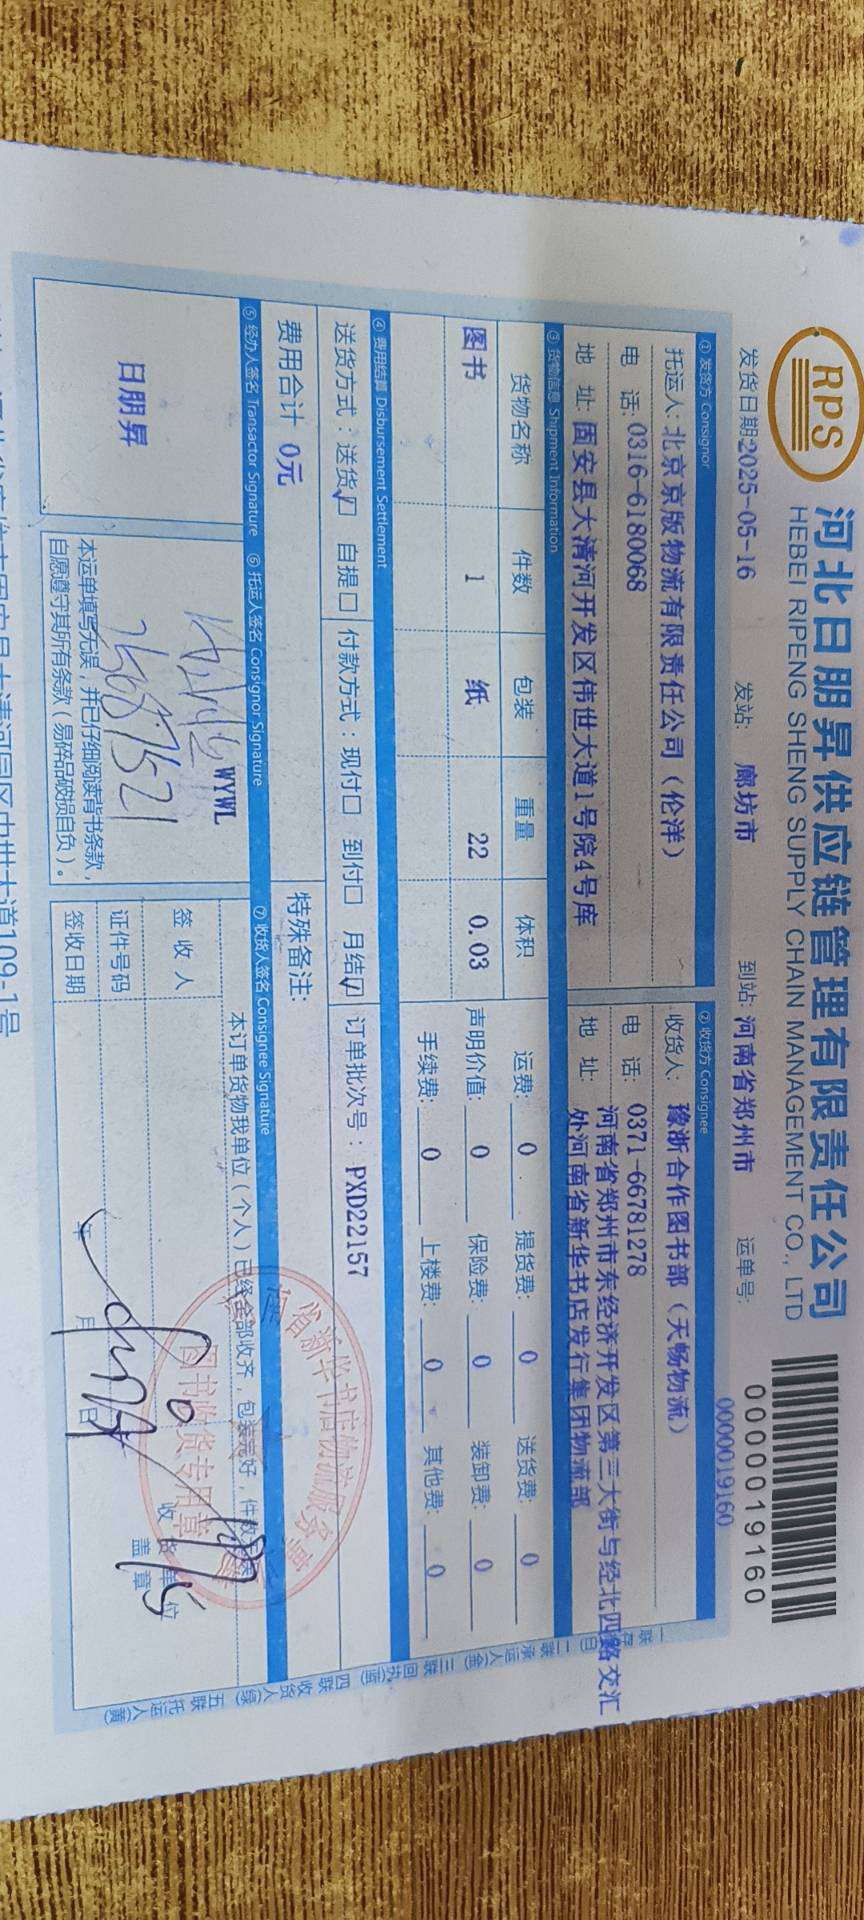 RPS
河北日朋昇供应链管理有限责任公司
HEBEI RIPENG SHENG SUPPLY CHAIN MANAGEMENT CO., LTD
0000019160
发货日期2025-05-16 发站: 廊坊市 到站: 河南省郑州市 运单号: 0000019160
① 发货方 Consignor ② 收货方 Consignee
托运人: 北京京版物流有限责任公司（伦洋） 收货人: 豫浙合作图书部（天畅物流）
电 话: 0316-6180068 电 话: 0371-66781278
地 址: 固安县大清河开发区伟世大道1号院4号库 地 址: 河南省郑州市东经济开发区第三大街与经北四路交汇
外河南省新华书店发行集团物流部
③ 货物信息 Shipment Information
货物名称 件数 包装 重量 体积 运费: 0 提货费: 0 送货费: 0
图书 1 纸 22 0.03 声明价值: 0 保险费: 0 装卸费: 0
手续费: 0 上楼费: 0 其他费: 0
④ 费用结算 Disbursement Settlement
送货方式: 送货☑ 自提□ 付款方式: 现付□ 到付□ 月结☑ 订单批次号: PXD22157
费用合计 0元 特殊备注:
⑤ 经办人签名 Transactor Signature ⑥ 托运人签名 Consignor Signature ⑦ 收货人签名 Consignee Signature
日朋昇
WYWL
本运单填写无误, 并已仔细阅读背书条款,
自愿遵守其所有条款（易碎品破损自负）。
本订单货物我单位（个人）已经全部收齐, 包装完好, 件数
签 收 人
证件号码
签收日期 年 月 日
收货单位
盖 章
省新华书店物流服务
图书收货专用章
二联承运人(金) 三联回执(蓝) 四联收货人(绿) 五联托运人(黄)
109-1号